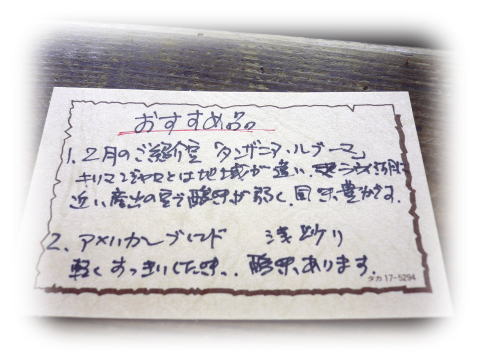 おすすめ品。
1. 2月のご紹介豆「タンザニア・ルブーマ」
キリマンジャロとは地域が違い、
近い産出の豆で酸味が弱く、風味豊かです。
2、アメリカンブレンド 浅炒り
軽くすっきりした味、酸味あります。
タカ 17-5294